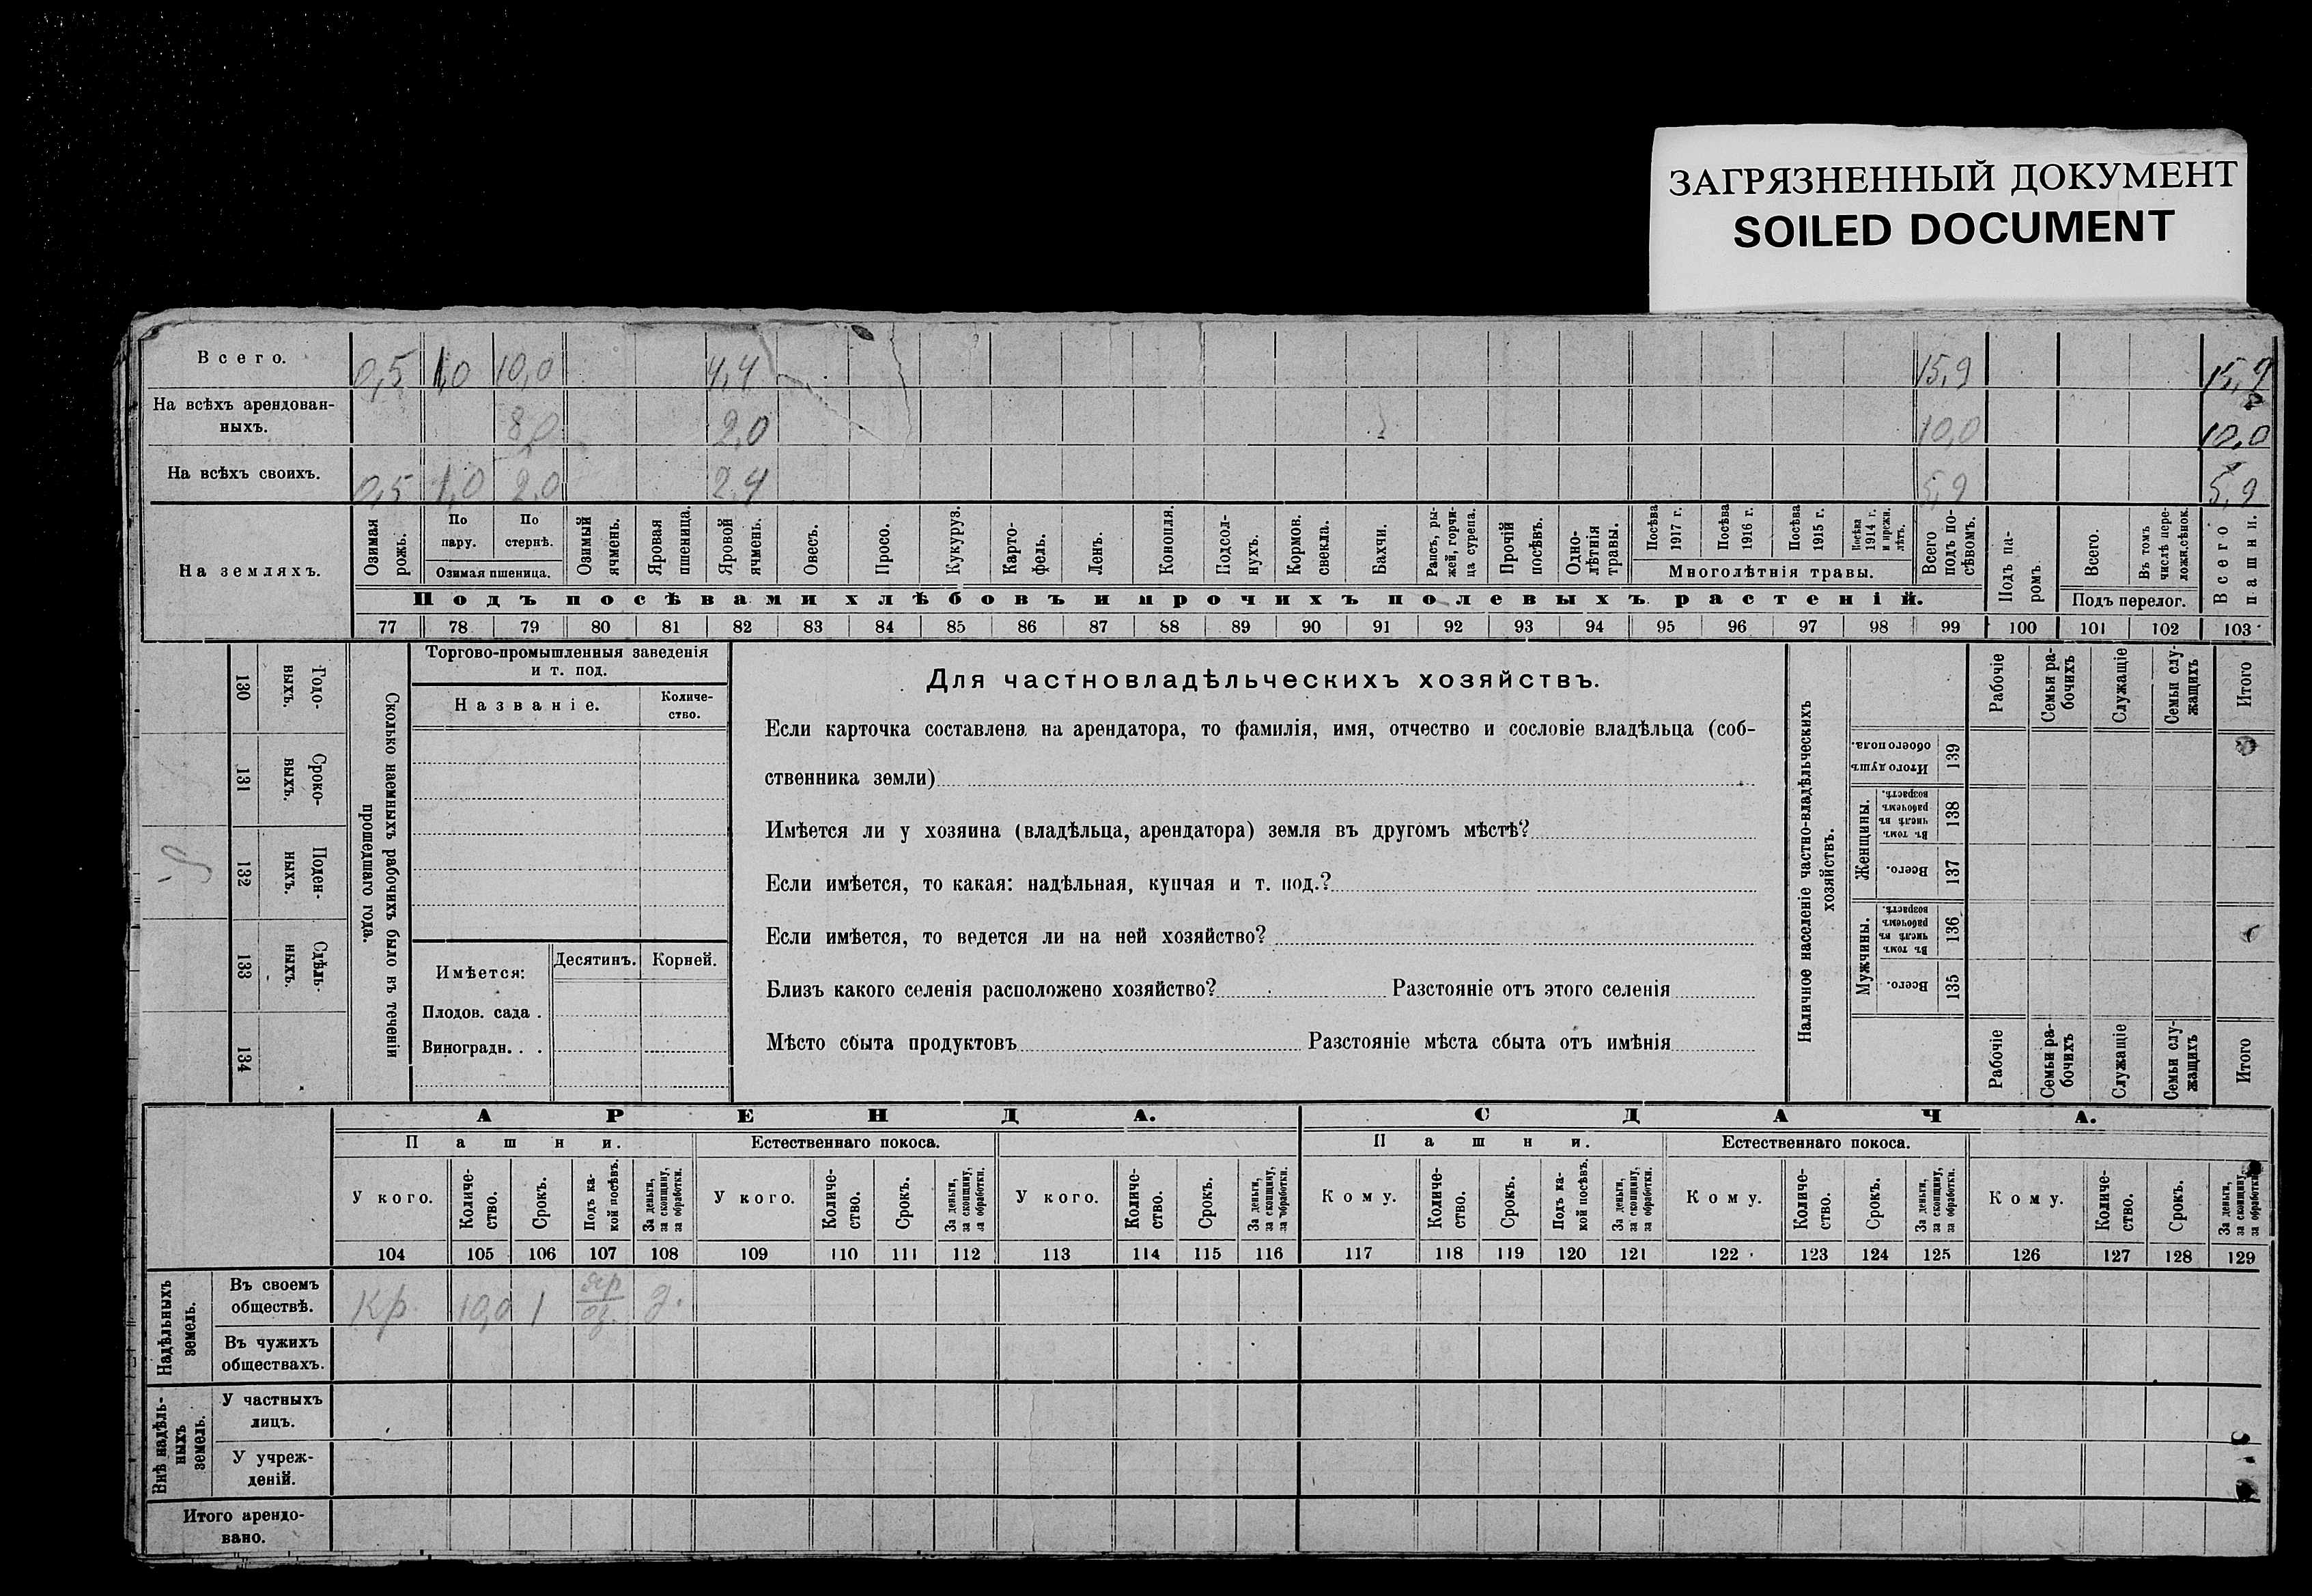 ЗАГРЯЗНЕННЫЙ ДОКУМЕНТ
SOILED DOCUMENT
Всего. 0,5 1,0 10,0 4,4 15,9 15,9
На всѣхъ арендован-
ныхъ. 8,0 2,0 10,0 10,0
На всѣхъ своихъ. 0,5 1,0 2,0 2,4 5,9 5,9
На земляхъ.
Озимая рожь.
По пару.
По стернѣ.
Озимая пшеница.
Озимый ячмень.
Яровая пшеница.
Яровой ячмень.
Овесъ.
Просо.
Кукуруз.
Карто-
фель.
Ленъ.
Конопля.
Подсол-
нухъ.
Кормов. свекла.
Бахчи.
Рапсъ, ры-
жей, горчи-
ца сурепа.
Прочій посѣвъ.
Одно-
лѣтнія травы.
Посѣва 1917 г.
Посѣва 1916 г.
Посѣва 1915 г.
Посѣва 1914 г. и прежн. лѣтъ.
Многолѣтнія травы.
Всего подъ по-
сѣвомъ.
Подъ па-
ромъ.
Всего.
Въ томъ числѣ пере-
ложн.сѣнок.
Подъ перелог.
Всего пашни.
Подъ посѣвами хлѣбовъ и прочихъ полевыхъ растеній.
77 78 79 80 81 82 83 84 85 86 87 88 89 90 91 92 93 94 95 96 97 98 99 100 101 102 103
130 Годо-
выхъ.
131 Сроко-
выхъ.
132 Поден-
ныхъ.
133 Сдѣль-
ныхъ.
134
Сколько наемныхъ рабочихъ было въ теченіи
прошедшаго года.
Торгово-промышленныя заведенія
и т. под.
Названіе.
Количе-
ство.
Имѣется:
Десятинъ. Корней.
Плодов. сада .
Виноградн. . .
Для частновладѣльческихъ хозяйствъ.
Если карточка составлена на арендатора, то фамилія, имя, отчество и сословіе владѣльца (соб-
ственника земли)
Имѣется ли у хозяина (владѣльца, арендатора) земля въ другомъ мѣстѣ?
Если имѣется, то какая: надѣльная, купчая и т. под.?
Если имѣется, то ведется ли на ней хозяйство?
Близъ какого селенія расположено хозяйство? Разстояніе отъ этого селенія
Мѣсто сбыта продуктовъ Разстояніе мѣста сбыта отъ имѣнія
Наличное населеніе частно-владѣльческихъ
хозяйствъ.
Рабочіе
Семьи ра-
бочихъ
Служащіе
Семьи слу-
жащихъ
Итого
Итого душъ обоего пола. 139
Женщины.
Въ томъ числѣ въ рабочемъ возрастѣ. 138
Всего. 137
Мужчины.
Въ томъ числѣ въ рабочемъ возрастѣ. 136
Всего. 135
Рабочіе
Семьи ра-
бочихъ
Служащіе
Семьи слу-
жащихъ
Итого
АРЕНДА. СДАЧА.
Пашни. Естественнаго покоса. Пашни. Естественнаго покоса.
У кого.
Количе-
ство.
Срокъ.
Подъ ка-
кой посѣвъ.
За деньги, за скопщину, за обработки.
У кого.
Количе-
ство.
Срокъ.
За деньги, за скопщину, за обработки.
У кого.
Количе-
ство.
Срокъ.
За деньги, за скопщину, за обработки.
Кому.
Количе-
ство.
Срокъ.
Подъ ка-
кой посѣвъ.
За деньги, за скопщину, за обработки.
Кому.
Количе-
ство.
Срокъ.
За деньги, за скопщину, за обработки.
Кому.
Количе-
ство.
Срокъ.
За деньги, за скопщину, за обработки.
104 105 106 107 108 109 110 111 112 113 114 115 116 117 118 119 120 121 122 123 124 125 126 127 128 129
Надѣльныхъ
земель.
Въ своемъ
обществѣ. Кр. 10,0 1 яр оз. д.
Въ чужихъ
обществахъ.
Внѣ надѣль-
ныхъ
земель.
У частныхъ
лицъ.
У учреж-
деній.
Итого арендо-
вано.